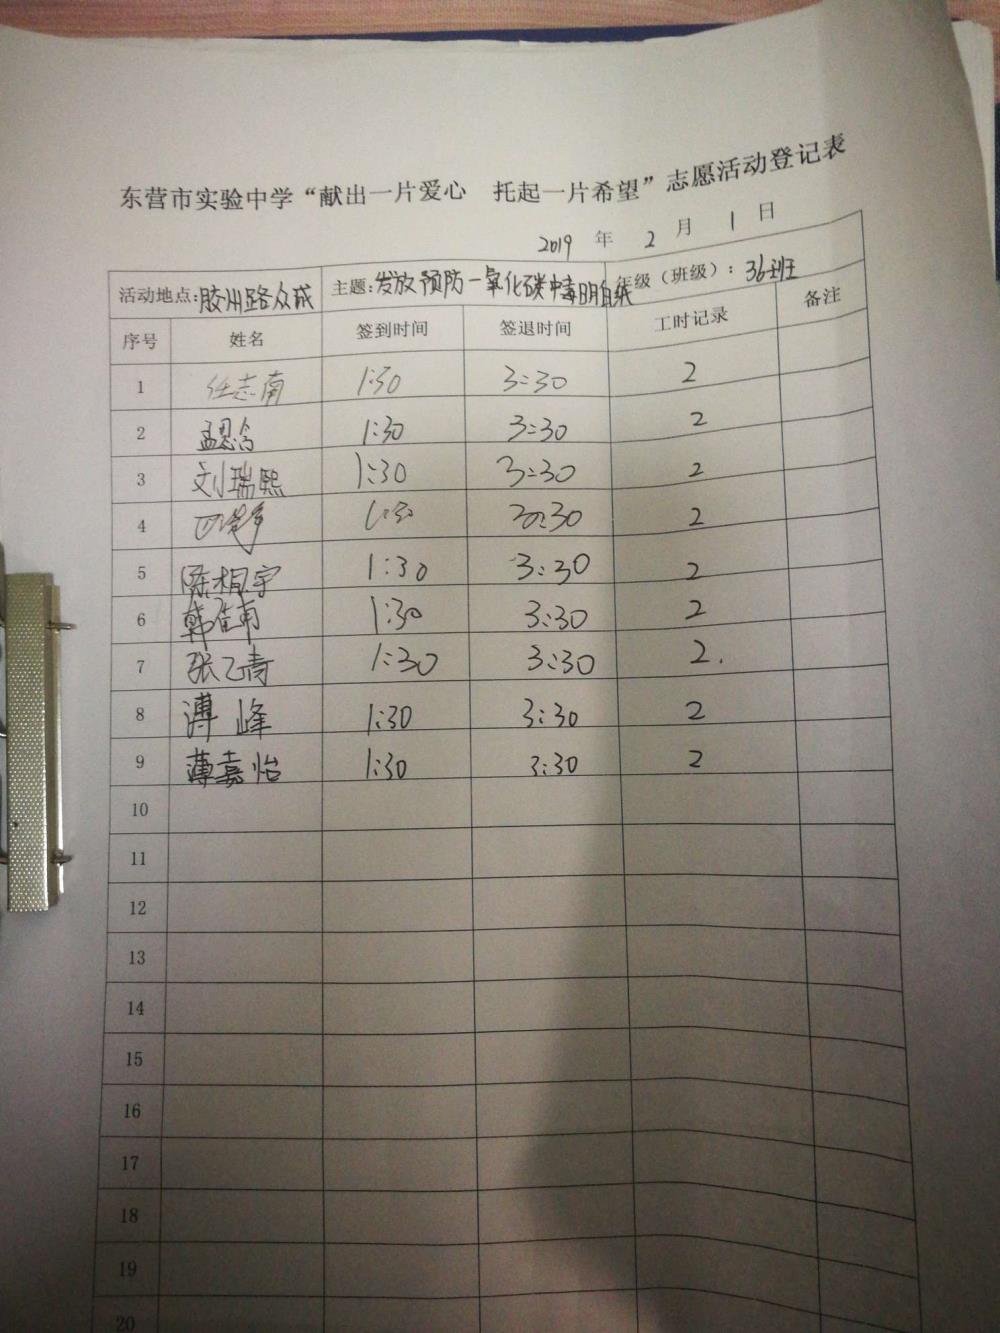 东营市实验中学“献出一片爱心 托起一片希望”志愿活动登记表
2019 年 2 月 1 日
活动地点:胶州路众成 主题:发放预防一氧化碳中毒明白纸 年级（班级）：36班
序号 姓名 签到时间 签退时间 工时记录 备注
1 任志南 1:30 3:30 2
2 孟思含 1:30 3:30 2
3 刘瑞熙 1:30 3:30 2
4 1:30 3:30 2
5 陈相宇 1:30 3:30 2
6 韩佳甫 1:30 3:30 2
7 张乙青 1:30 3:30 2.
8 溥峰 1:30 3:30 2
9 薄嘉怡 1:30 3:30 2
10
11
12
13
14
15
16
17
18
19
20